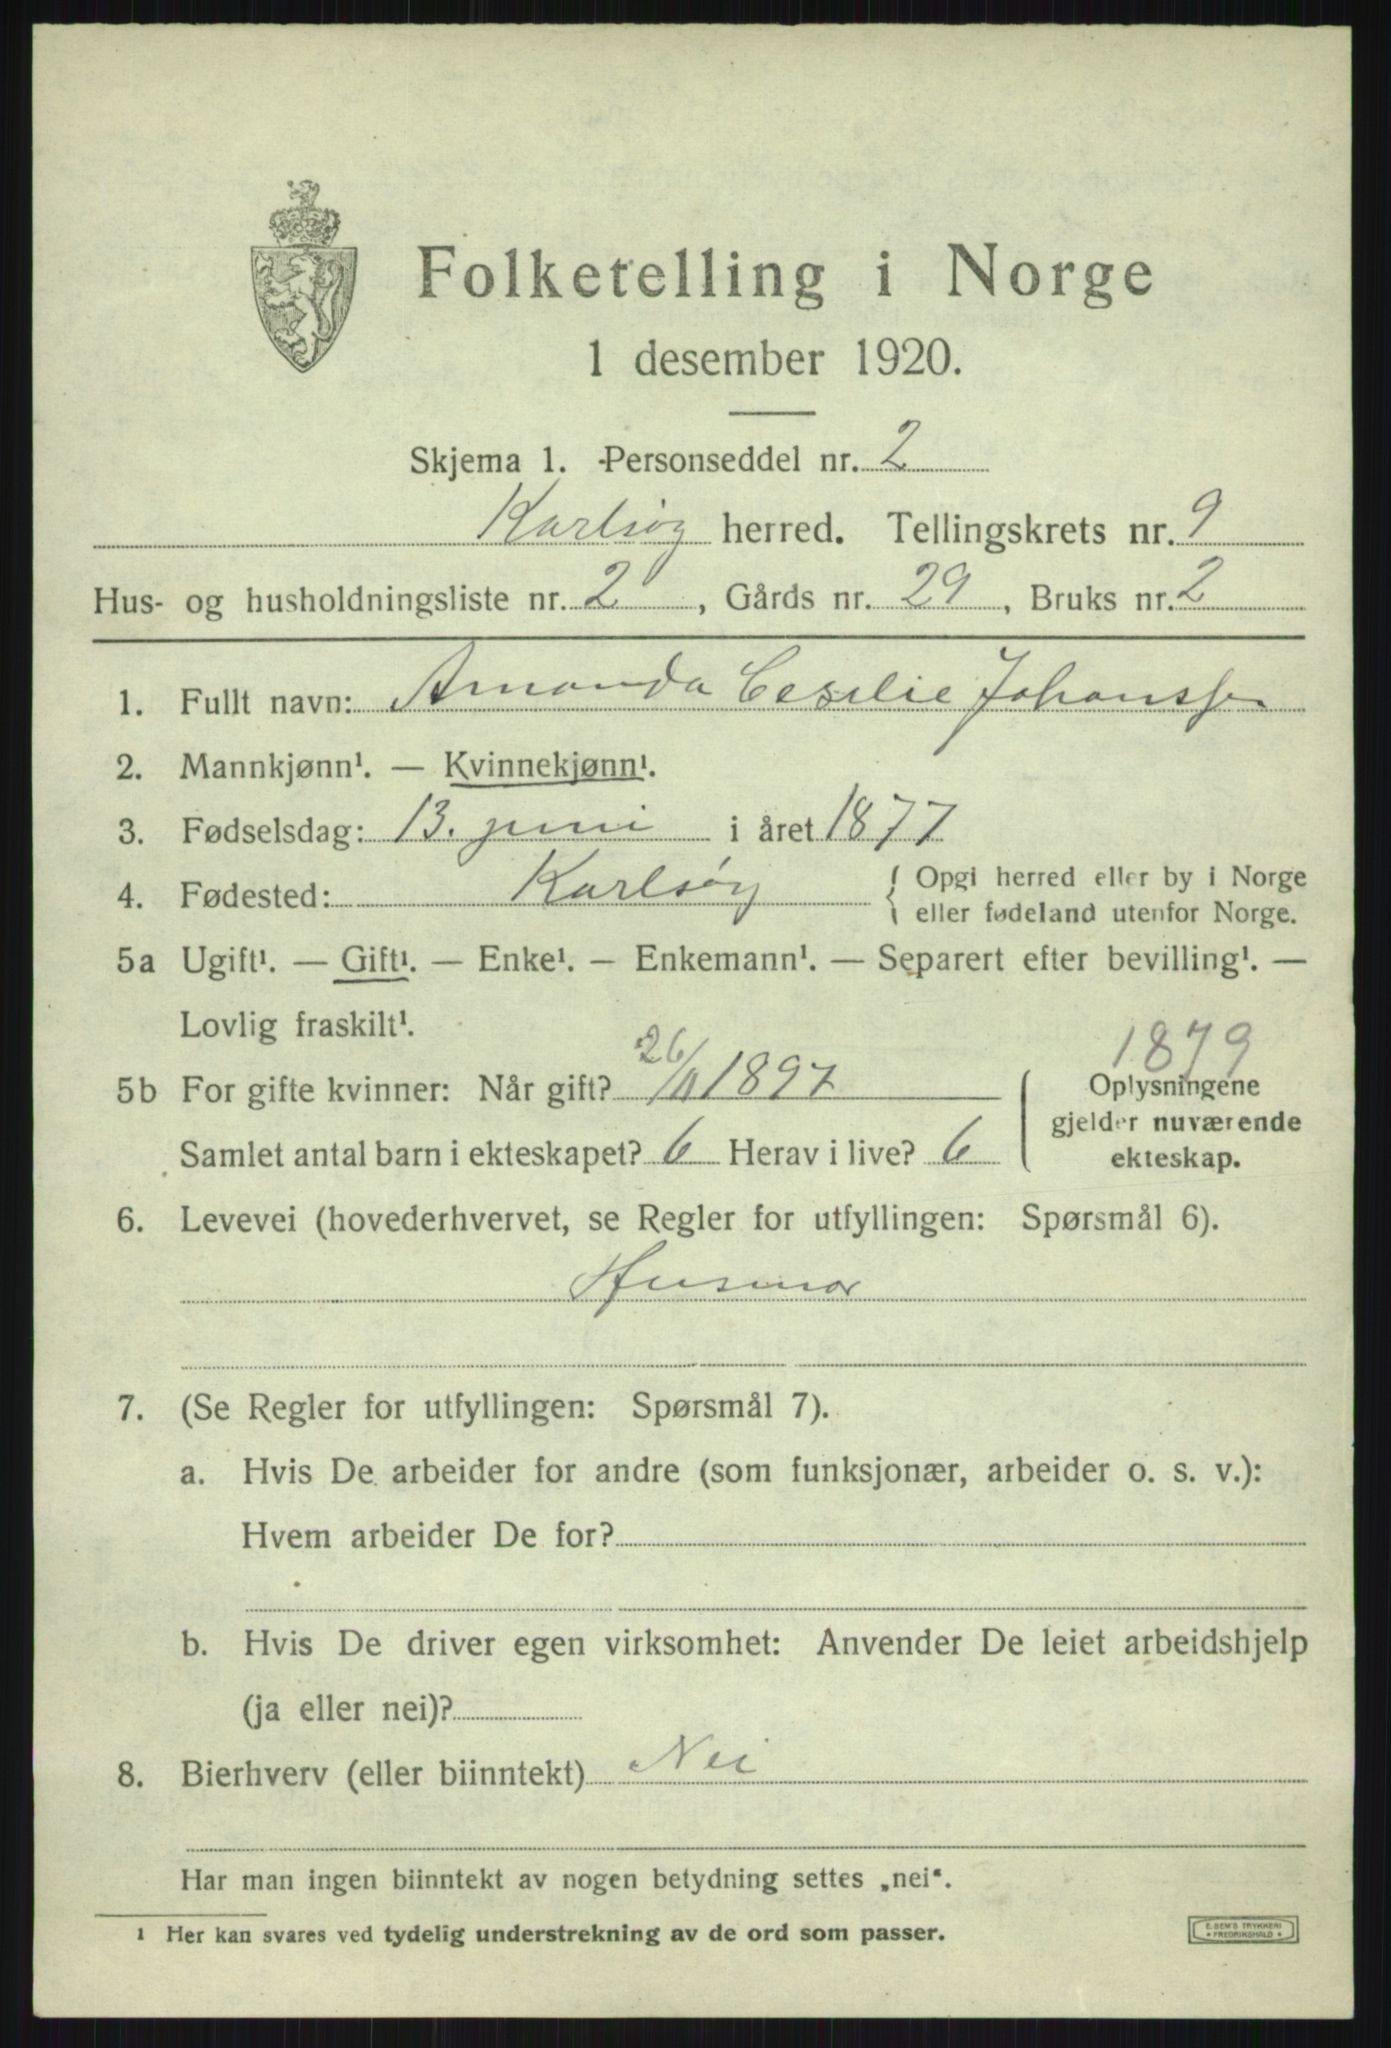 Folketelling i Norge
1 desember 1920.
Skjema 1. Personseddel nr. 2
Karlsøy herred. Tellingskrets nr. 9
Hus- og husholdningsliste nr. 2, Gårds nr. 29, Bruks nr. 2
1. Fullt navn: Amanda Cesilie Johanssen
2. Mannkjønn¹. — Kvinnekjønn¹.
3. Fødselsdag: 13. juni i året 1877
4. Fødested: Karlsøy { Opgi herred eller by i Norge
eller fødeland utenfor Norge.
5a Ugift¹. — Gift¹. — Enke¹. — Enkemann¹. — Separert efter bevilling¹. —
Lovlig fraskilt¹.
1879
5b For gifte kvinner: Når gift? 26/11 1897
Samlet antal barn i ekteskapet? 6 Herav i live? 6
Oplysningene
gjelder nuværende
ekteskap.
6. Levevei (hovederhvervet, se Regler for utfyllingen: Spørsmål 6).
Husmor
7. (Se Regler for utfyllingen: Spørsmål 7).
a. Hvis De arbeider for andre (som funksjonær, arbeider o. s. v.):
Hvem arbeider De for?
b. Hvis De driver egen virksomhet: Anvender De leiet arbeidshjelp
(ja eller nei)?
8. Bierhverv (eller biinntekt) Nei
Har man ingen biinntekt av nogen betydning settes „nei“.
¹ Her kan svares ved tydelig understrekning av de ord som passer.
E. SEM'S TRYKKERI
* FREDRIKSHALD *